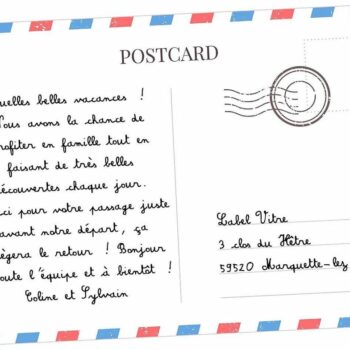 POSTCARD
uelles belles vacances !
ous avons la chance de
rofiter en famille tout en
faisant de très belles
écouvertes chaque jour.
ci pour votre passage juste
avant notre départ, ça
ègera le retour ! Bonjour
oute l'équipe et à bientôt !
Coline et Sylvain
Label Vitre
3 clos du Hêtre
59520 Marquette-lez